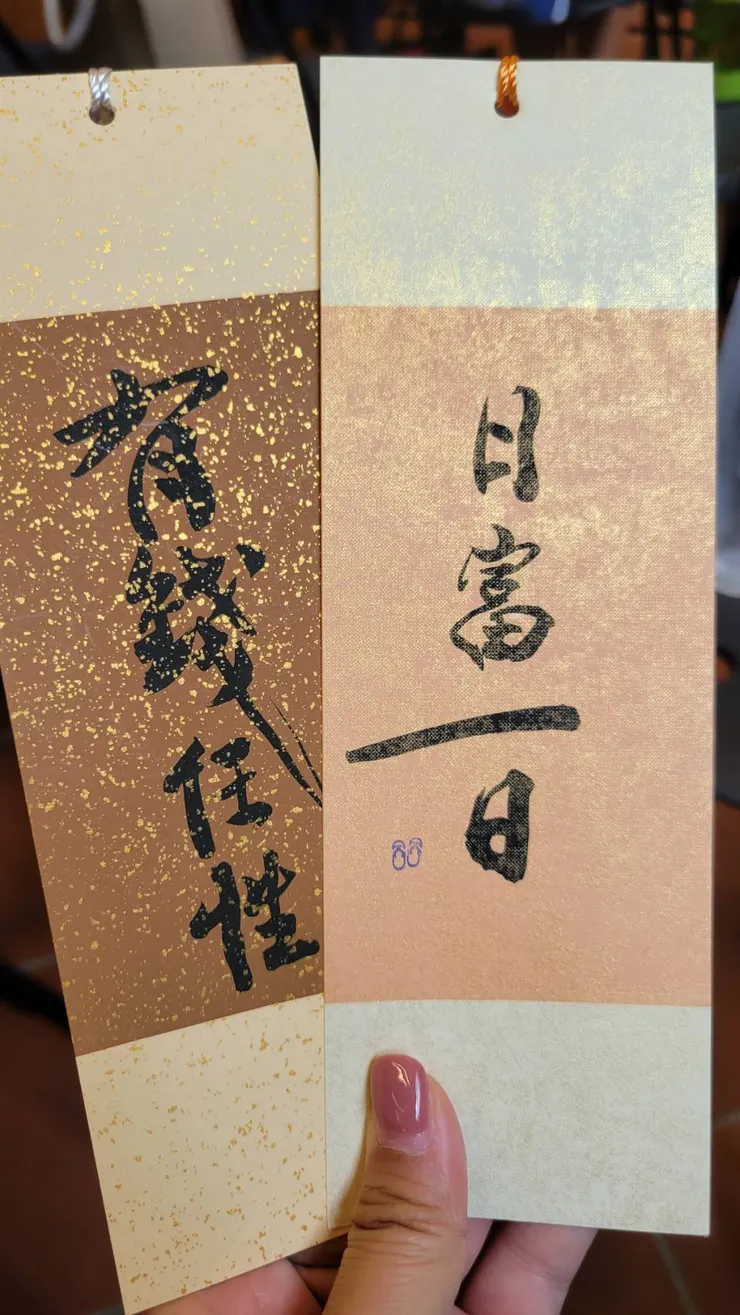 有錢任性
日富一日